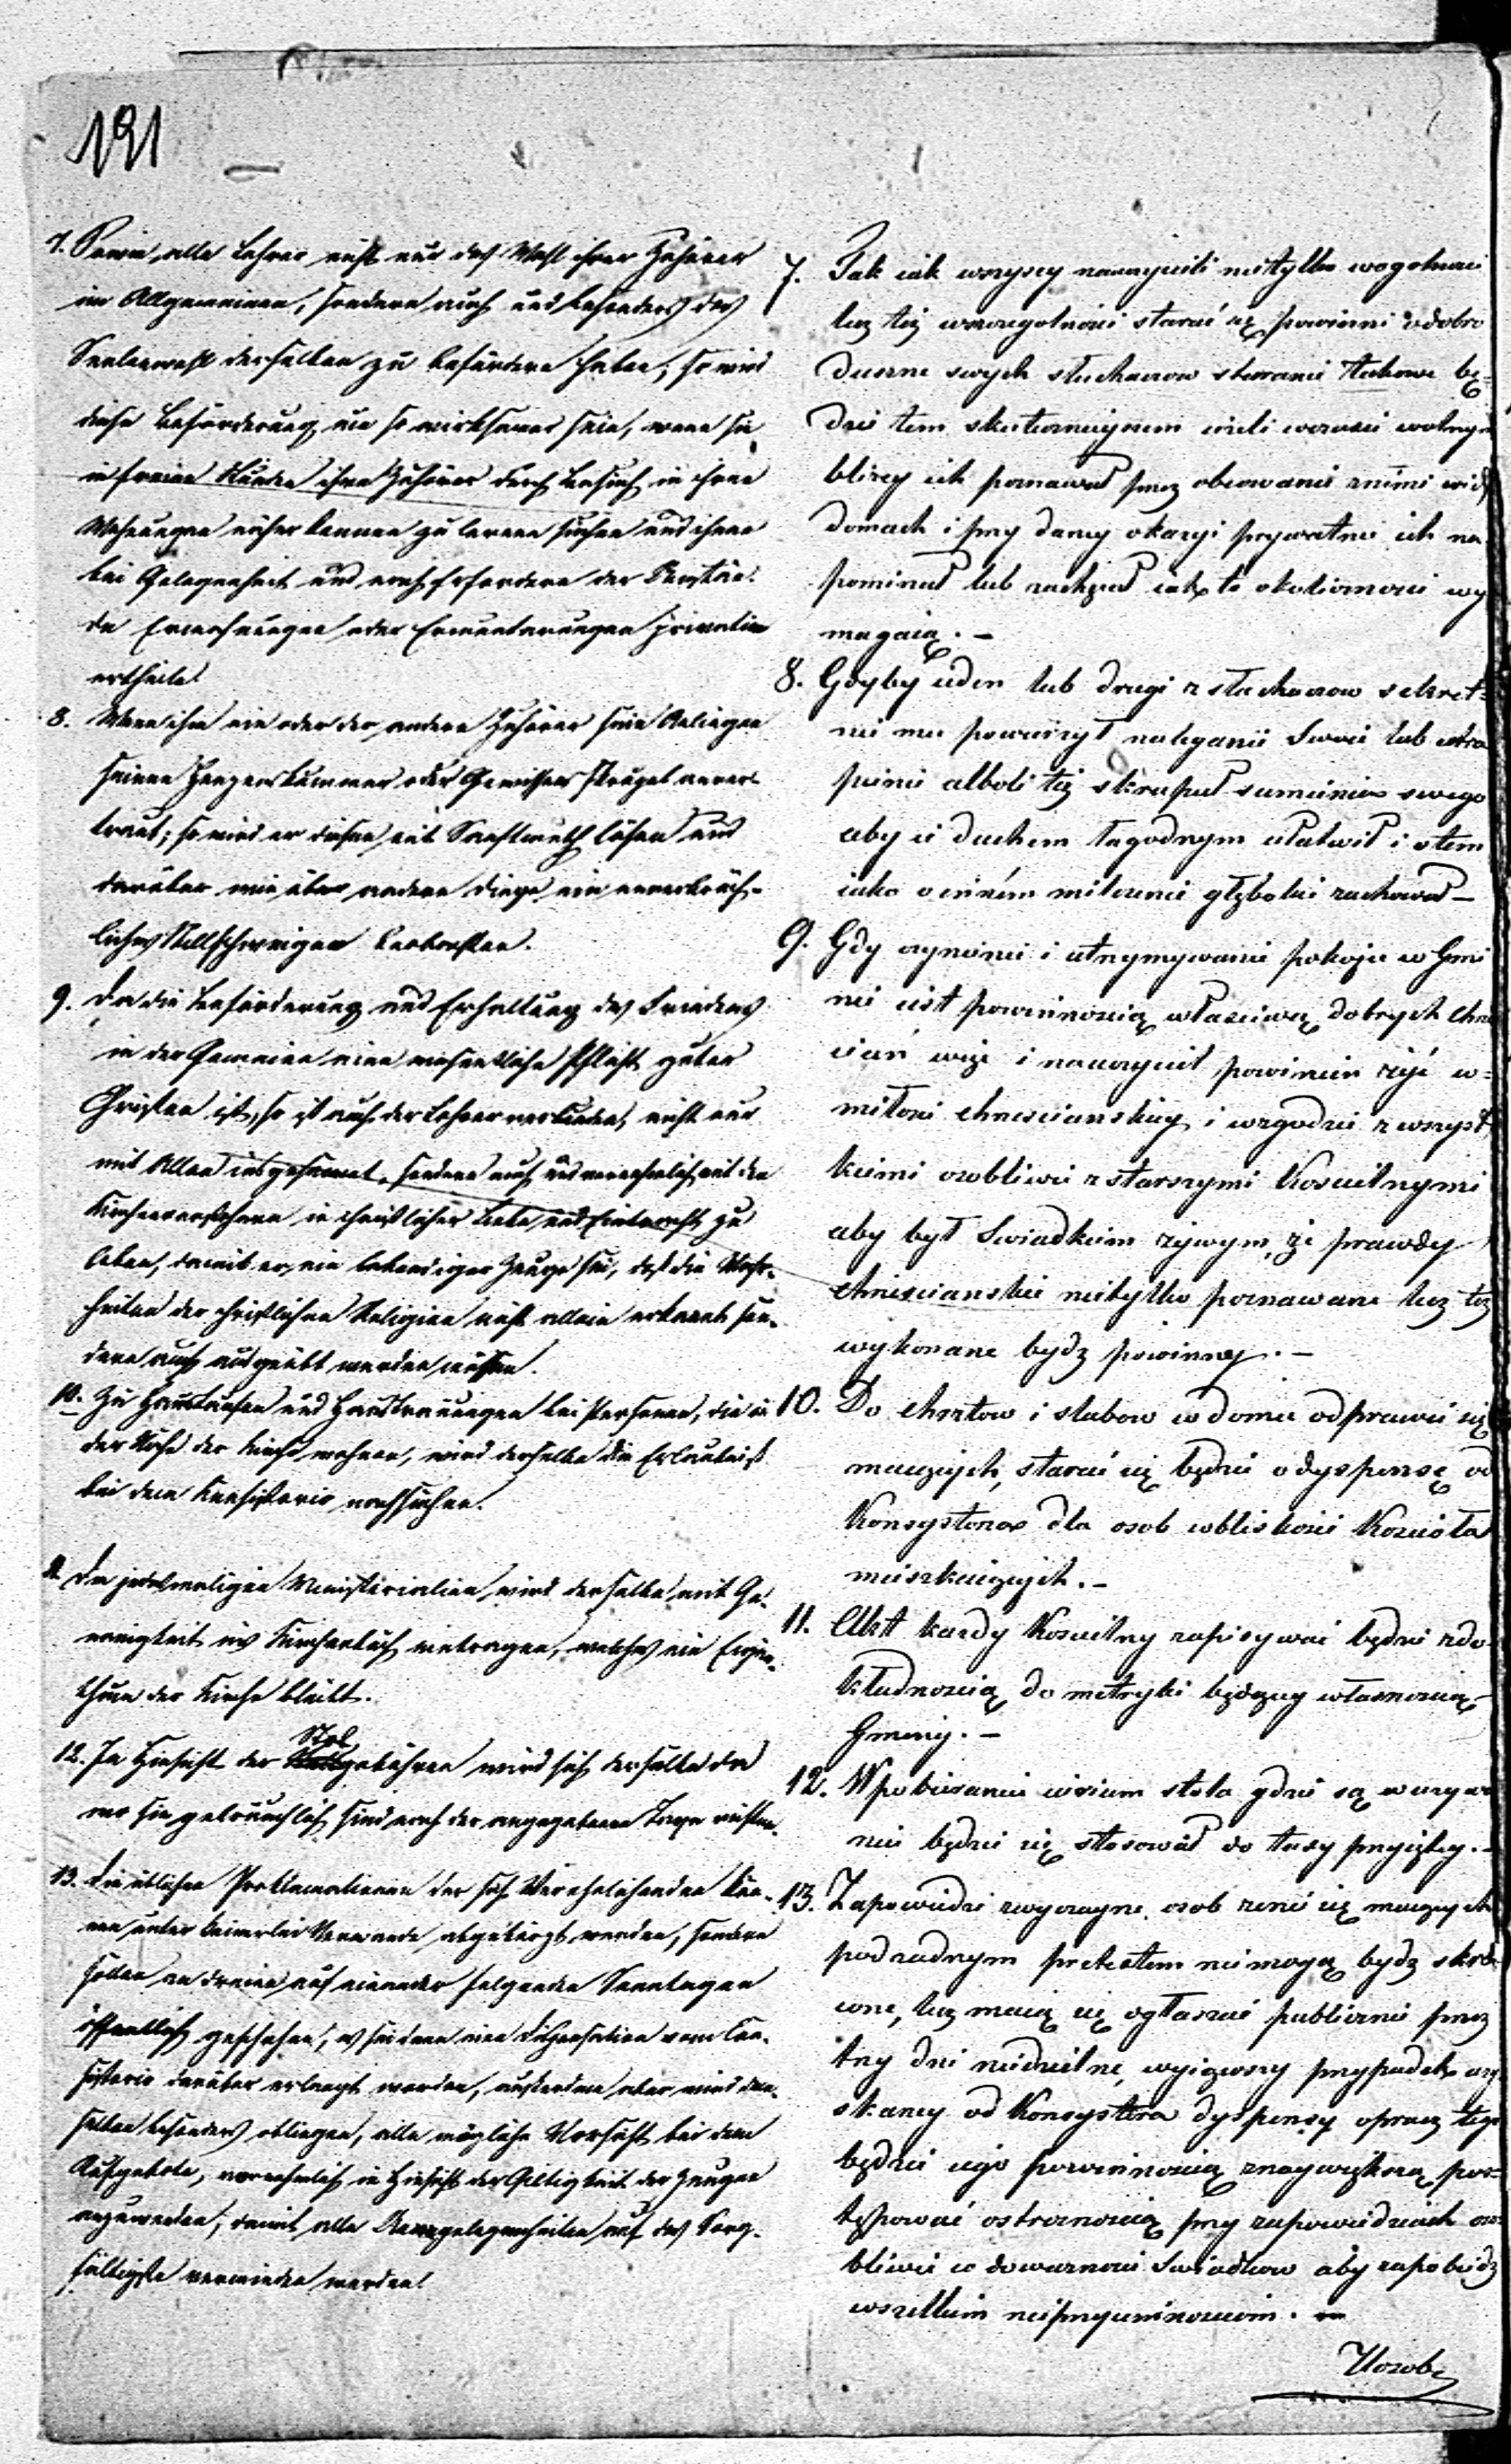 191
7. Sowie alle Lehrer nicht nur das Wohl ihrer Zuhörer
im Allgemeinen, sondern auch und besonders das
Seelenwohl derselben zu befördern haben, so wird
diese Beförderung um so wirksamer sein, wenn sie
in freien Stunden ihre Zuhörer durch Besuch in ihren
Wohnungen näher kennen zu lernen suchen und ihnen
bei Gelegenheit und nach Erfordern der Umstän-
de Ermahnungen oder Ermunterungen privatim
ertheilt.
8. Wenn ihm ein oder der andere Zuhörer sein Anliegen
seinen Herzenskummer oder Gewissens Skrupel anver-
traut; so wird er diesen mit Sanftmuth lösen und
darüber wie über andere Dinge ein unverbrüch-
liches Stillschweigen beobachten.
9. Da die Beförderung und Erhaltung des Friedens
in der Gemeine eine wesentliche Pflicht guter
Christen ist, so ist auch der Lehrer verbunden, nicht nur
mit Allen insgesammt, sondern auch und vornehmlich mit den
Kirchenvorstehern in christlicher Liebe und Eintracht zu
leben, damit er ein lebendiger Zeuge sei, daß die Wahr-
heiten der christlichen Religion nicht allein erkannt son-
dern auch ausgeübt werden müssen.
10. Zu Haustaufen und Haustrauungen bei Personen, die in
der Nähe der Kirche wohnen, wird derselbe die Erlaubniß
bei dem Consistorio nachsuchen.
11. Die jedesmaligen Ministerialien wird derselbe mit Ge-
nauigkeit ins Kirchenbuch eintragen, welches ein Eigen-
thum der Kirche bleibt.
12. In Hinsicht der Stol
gebühren wird sich derselbe da
wo sie gebräuchlich sind nach der angegebenen Taxe richten.
13. Die üblichen Proklamationen der sich Verehelichenden kön-
nen unter keinerlei Vorwande abgekürzt werden, sondern
sollen an dreien auf einander folgenden Sonntagen
öffentlich geschehen, es sei denn eine Dispensation vom Con-
sistorio darüber erlangt worden, außerdem aber wird dem-
selben besonders obliegen, alle mögliche Vorsicht bei dem
Aufgebote, vornehmlich in Hinsicht der Giltigkeit der Zeugen
anzuwenden; damit alle Unangelegenheiten auf das Sorg-
fältigste vermieden werden.
7. Jak iak wszyscy nauczyciele nietylko wogolnosci
lecz też wszczegolnosci starać się powinni o dobro
duszne swych słuchaczow staranie takowe bę-
dzie tem skutecznieyszem iezeli wczasie wolnym
bliżey ich poznawać przez obcowanie znimi w ich
domach i przy daney okazyi prywatnie ich na
pominać lub zachęcać iak to okoliczności wy
magaią. -
8. Gdyby ieden lub drugi z słuchaczow sekret-
nie mu powierzył naleganie Swoie lub utra
pienie alboli też skrupuł sumienia swego
aby ie duchem łagodnym ułatwił i otem
iako o innem milczenie głębokie zachował -
9. Gdy czynienie i utrzymywanie pokoju w Gmi
nie iest powinnością własciwą dobrych chrze
scian więc i nauczyciel powinien żyć w-
miłosci chrzescianskiey i wzgodzie z wszyst
kiemi osobliwie z starszymi Koscielnymi
aby był Swiadkiem żywym, że prawdy
chrzescianskie nietylko poznawane lecz też
wykonane bydź powinny. -
10. Do chrztow i slubow w domu odprawić się
maiących, starać się będzie o dyspensę od
Konsystorza dla osob wbliskosci Koscioła
mieszkaiących. -
11. Akt każdy Koscielny zapisywać będzie zdo
kładnoscią do metryki będącey własnoscią
Gminy. -
12. W pobieraniu iurium stola gdzie są w używa
niu będzie się stosował do taxy przyiętey. -
13. Zapowiedzi zwyczayne osob żenić się maiących
pod żadnym pretextem nie mogą bydź skró
cone, lecz maią się ogłaszać publicznie przez
trzy dni niedzielne, wyiąwszy przypadek uzy
skaney od Konsystorza dyspensy oprocz tego
będzie iego powinnoscią znaywiększą pos-
tępować ostroznoscią przy zapowiedziach oso
bliwie w dowaznosci Swiadkow aby zapobiedz
wszelkim nieprzyiemnosciom. -